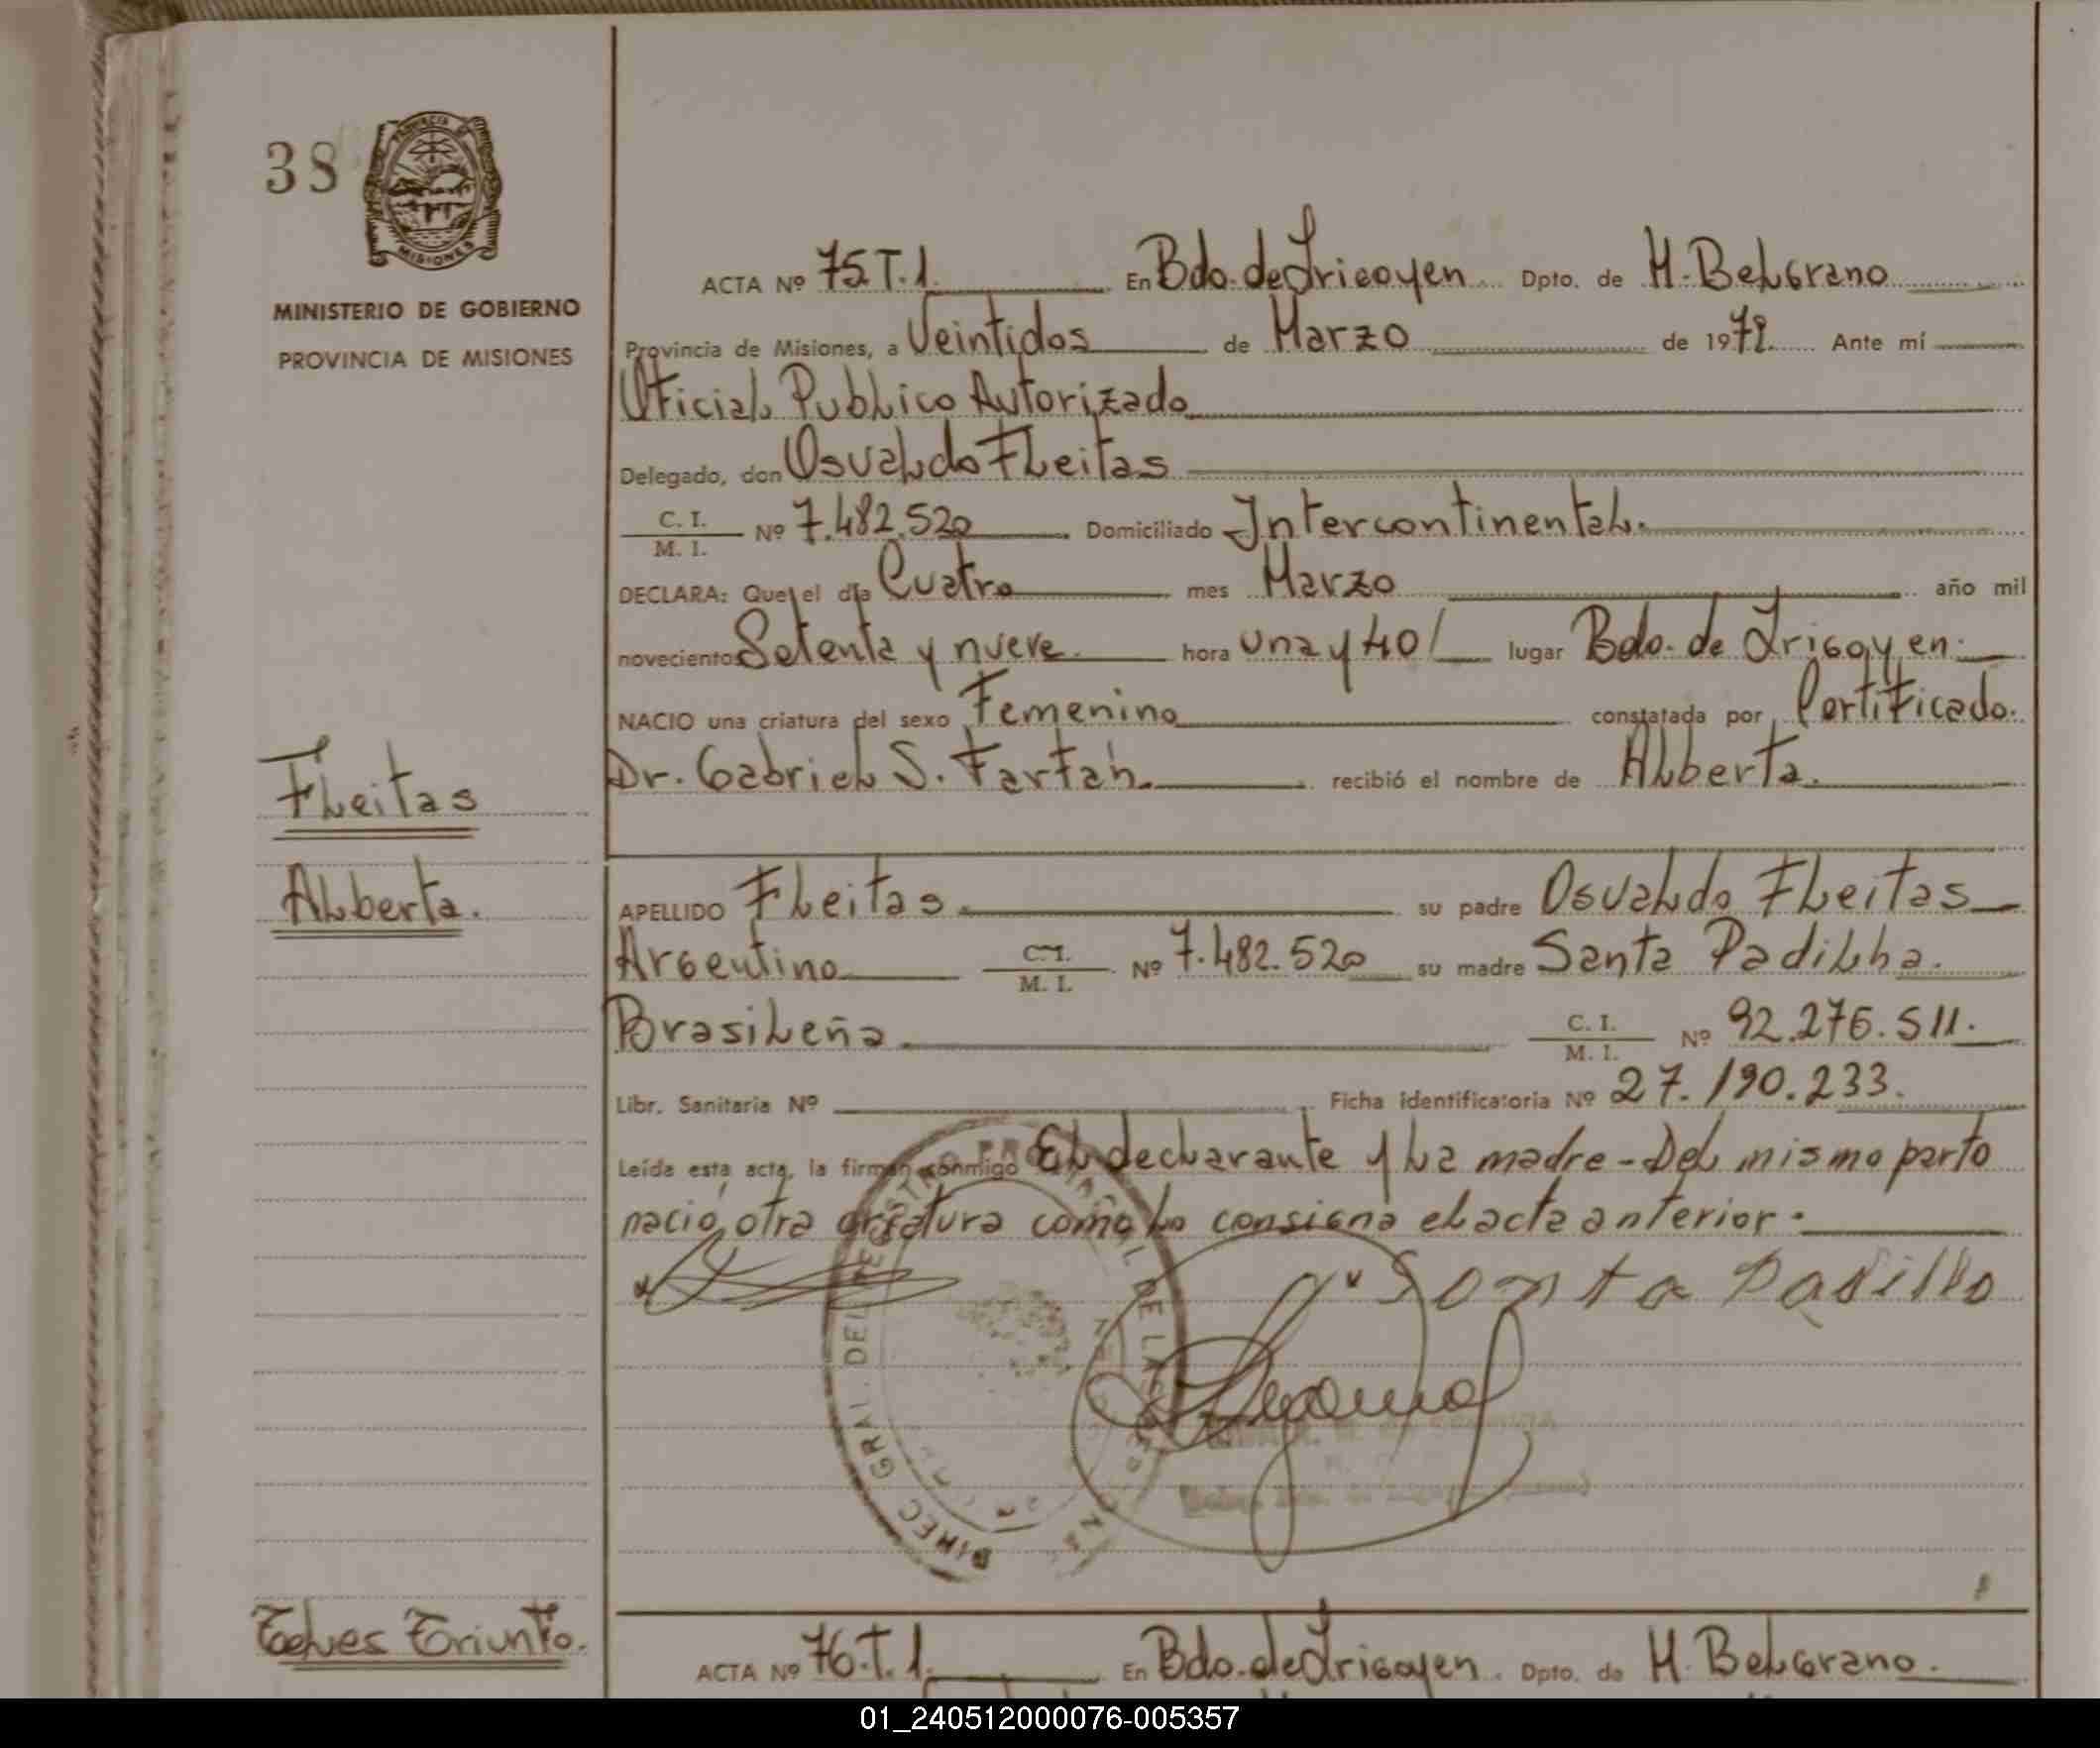 38
MINISTERIO DE GOBIERNO
PROVINCIA DE MISIONES
ACTA Nº 75 T. 1. En Bdo. de Irigoyen Dpto. de M. Belgrano
Provincia de Misiones, a Veintidos de Marzo de 1979. Ante mí
Oficial Publico Autorizado
Delegado, don Osvaldo Fleitas
C. I. / M. I. Nº 7.482.520 Domiciliado Intercontinental.
DECLARA: Que el día Cuatro mes Marzo año mil
novecientos Setenta y nueve. hora una y 40/ lugar Bdo. de Irigoyen.
NACIO una criatura del sexo Femenino constatada por Certificado.
Dr. Gabriel S. recibió el nombre de Alberta.
Fleitas
Alberta.
APELLIDO Fleitas. su padre Osvaldo Fleitas
Argentino C. I. / M. I. Nº 7.482.520 su madre Santa Padilha.
Brasileña. C. I. / M. I. Nº 92.276.511.
Libr. Sanitaria Nº Ficha identificatoria Nº 27.190.233.
Leída esta acta, la firman conmigo El declarante y la madre - Del mismo parto
nació otra criatura como lo consigna el acta anterior.
Santa Padilha
Telves Triunfo.
ACTA Nº 76. T. 1. En Bdo. de Irigoyen. Dpto. de M. Belgrano.
01_240512000076-005357